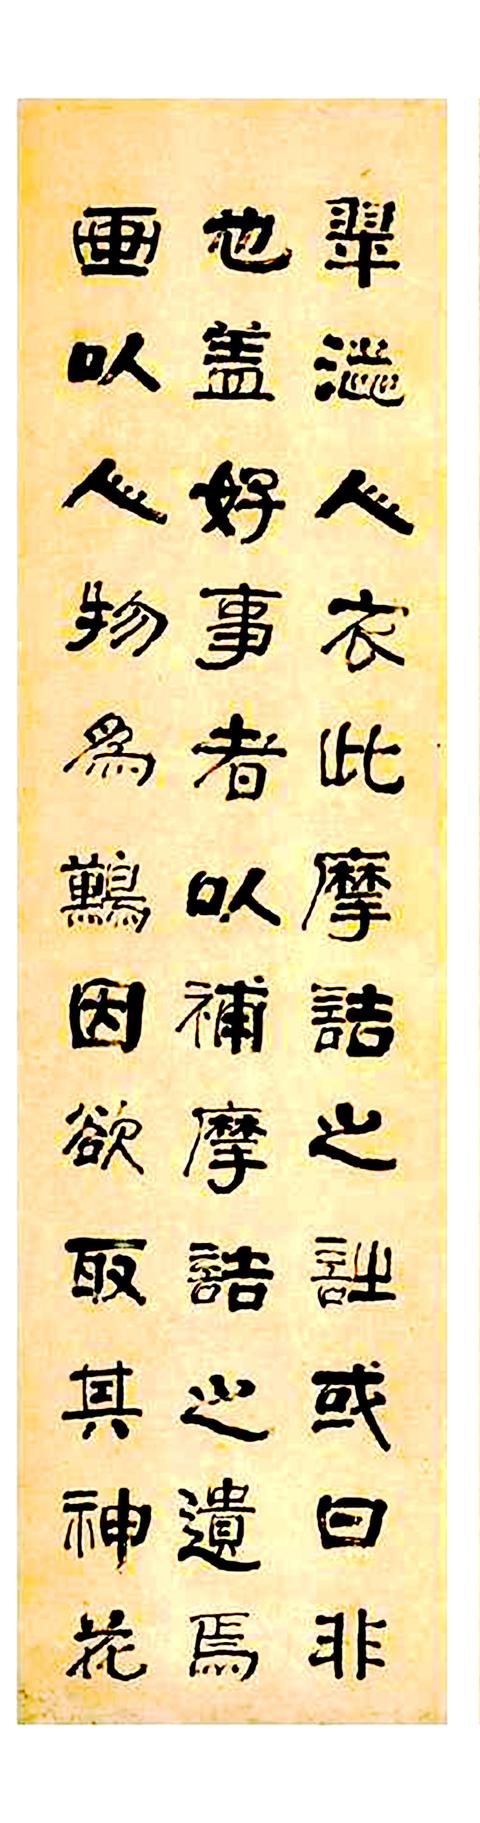 翠濕人衣此摩詰之詩或曰非
也盖好事者以補摩詰之遺焉
画以人物為難因欲取其神花